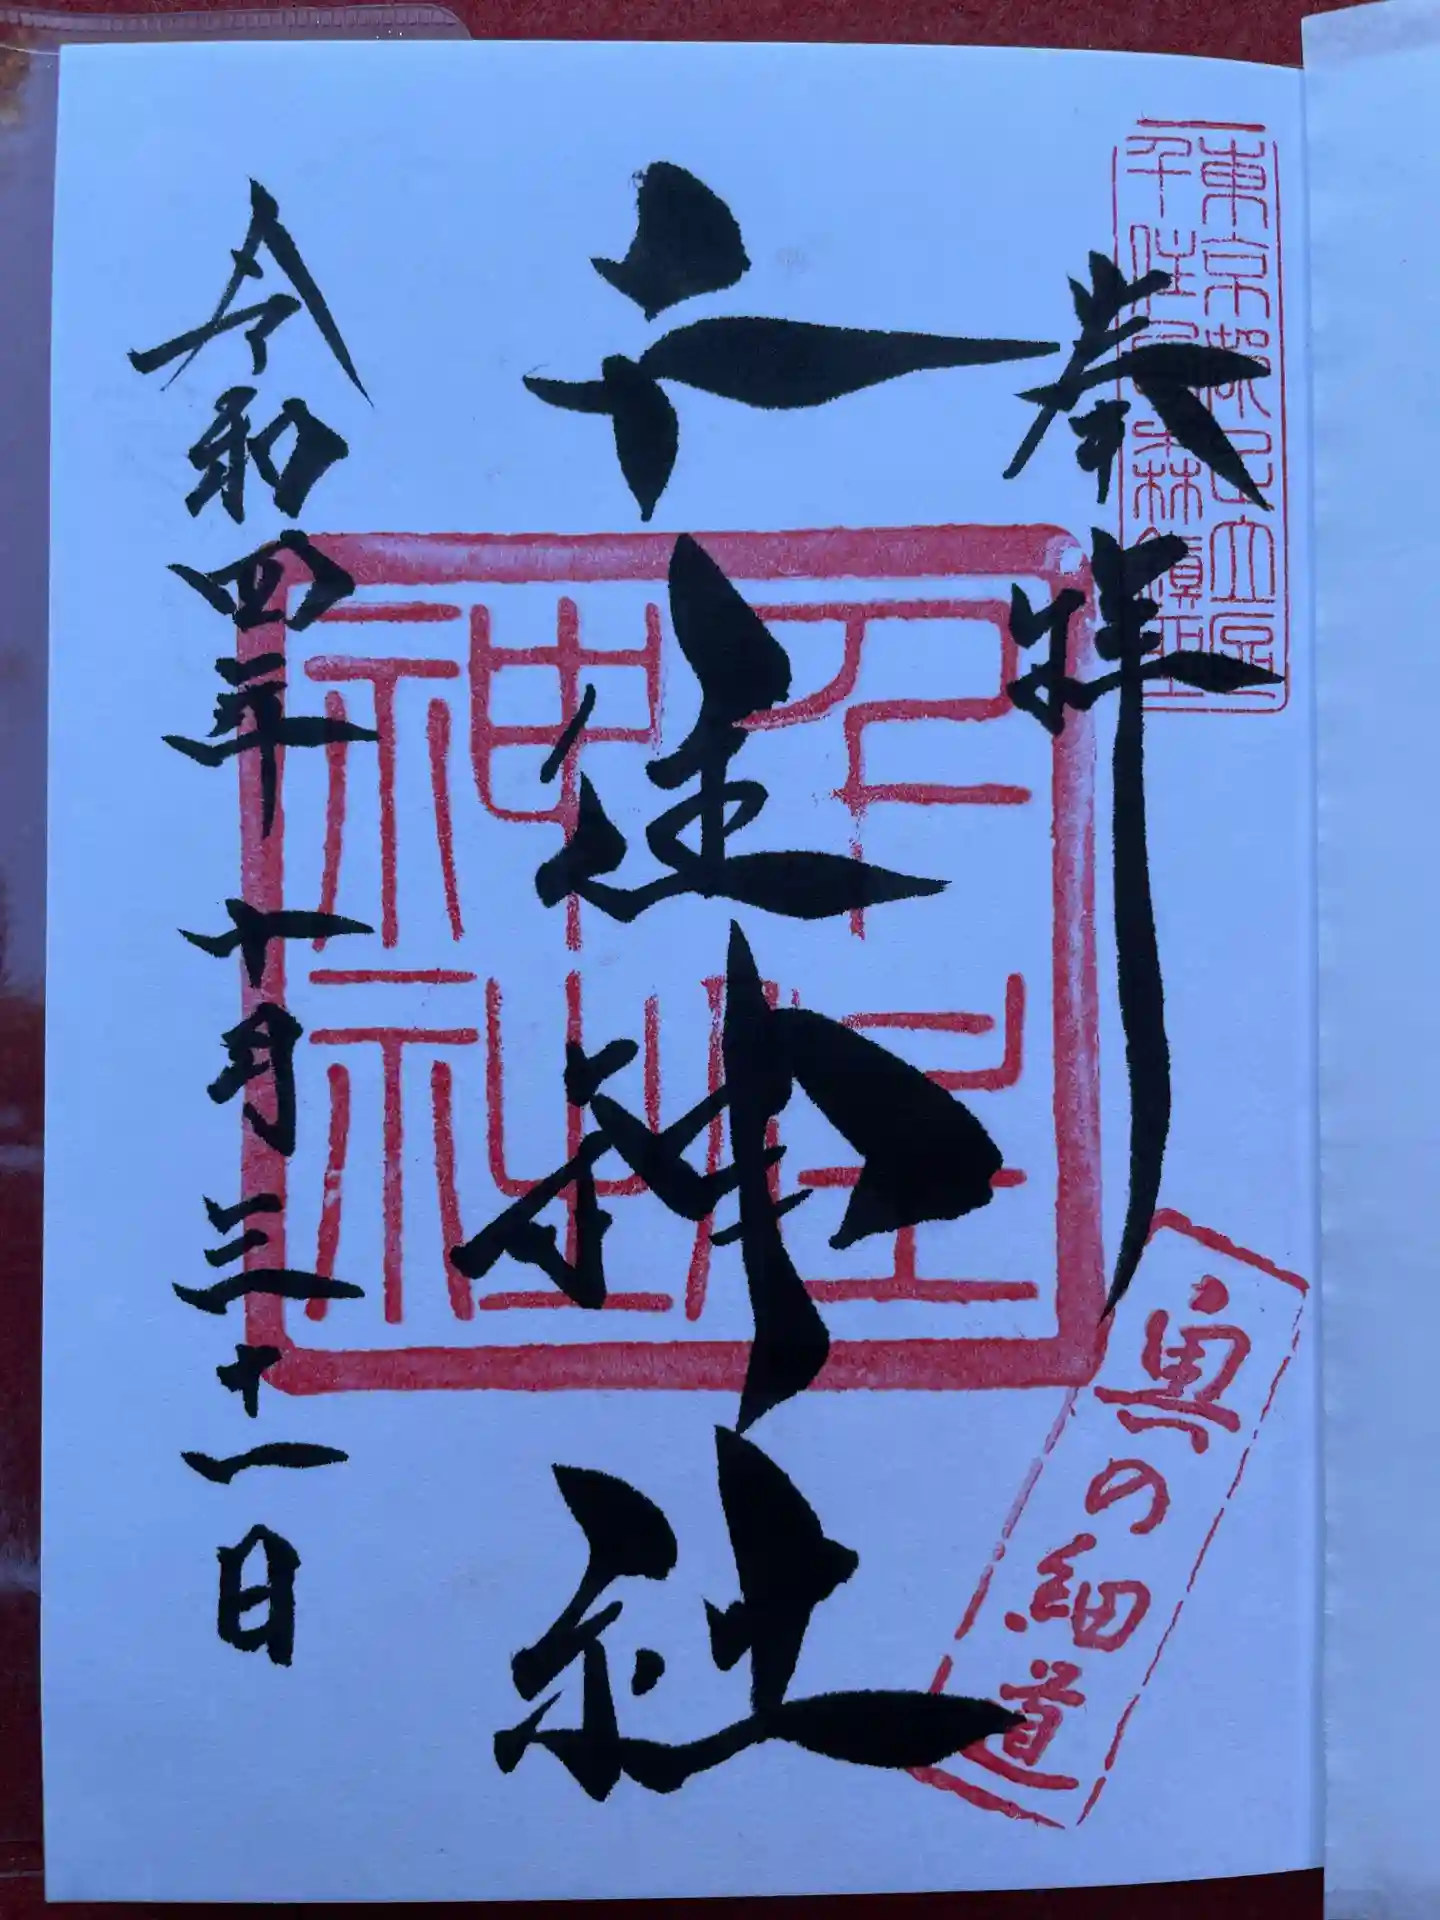 東京都足立区
千住
森鎮座
奉拝
奥の細道
千住神社
千住
神社
令和四年十月三十一日